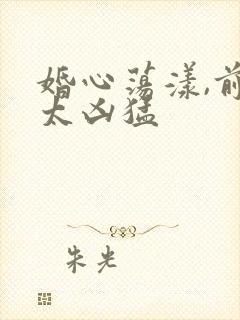 婚心荡漾,前
太凶猛
朱光